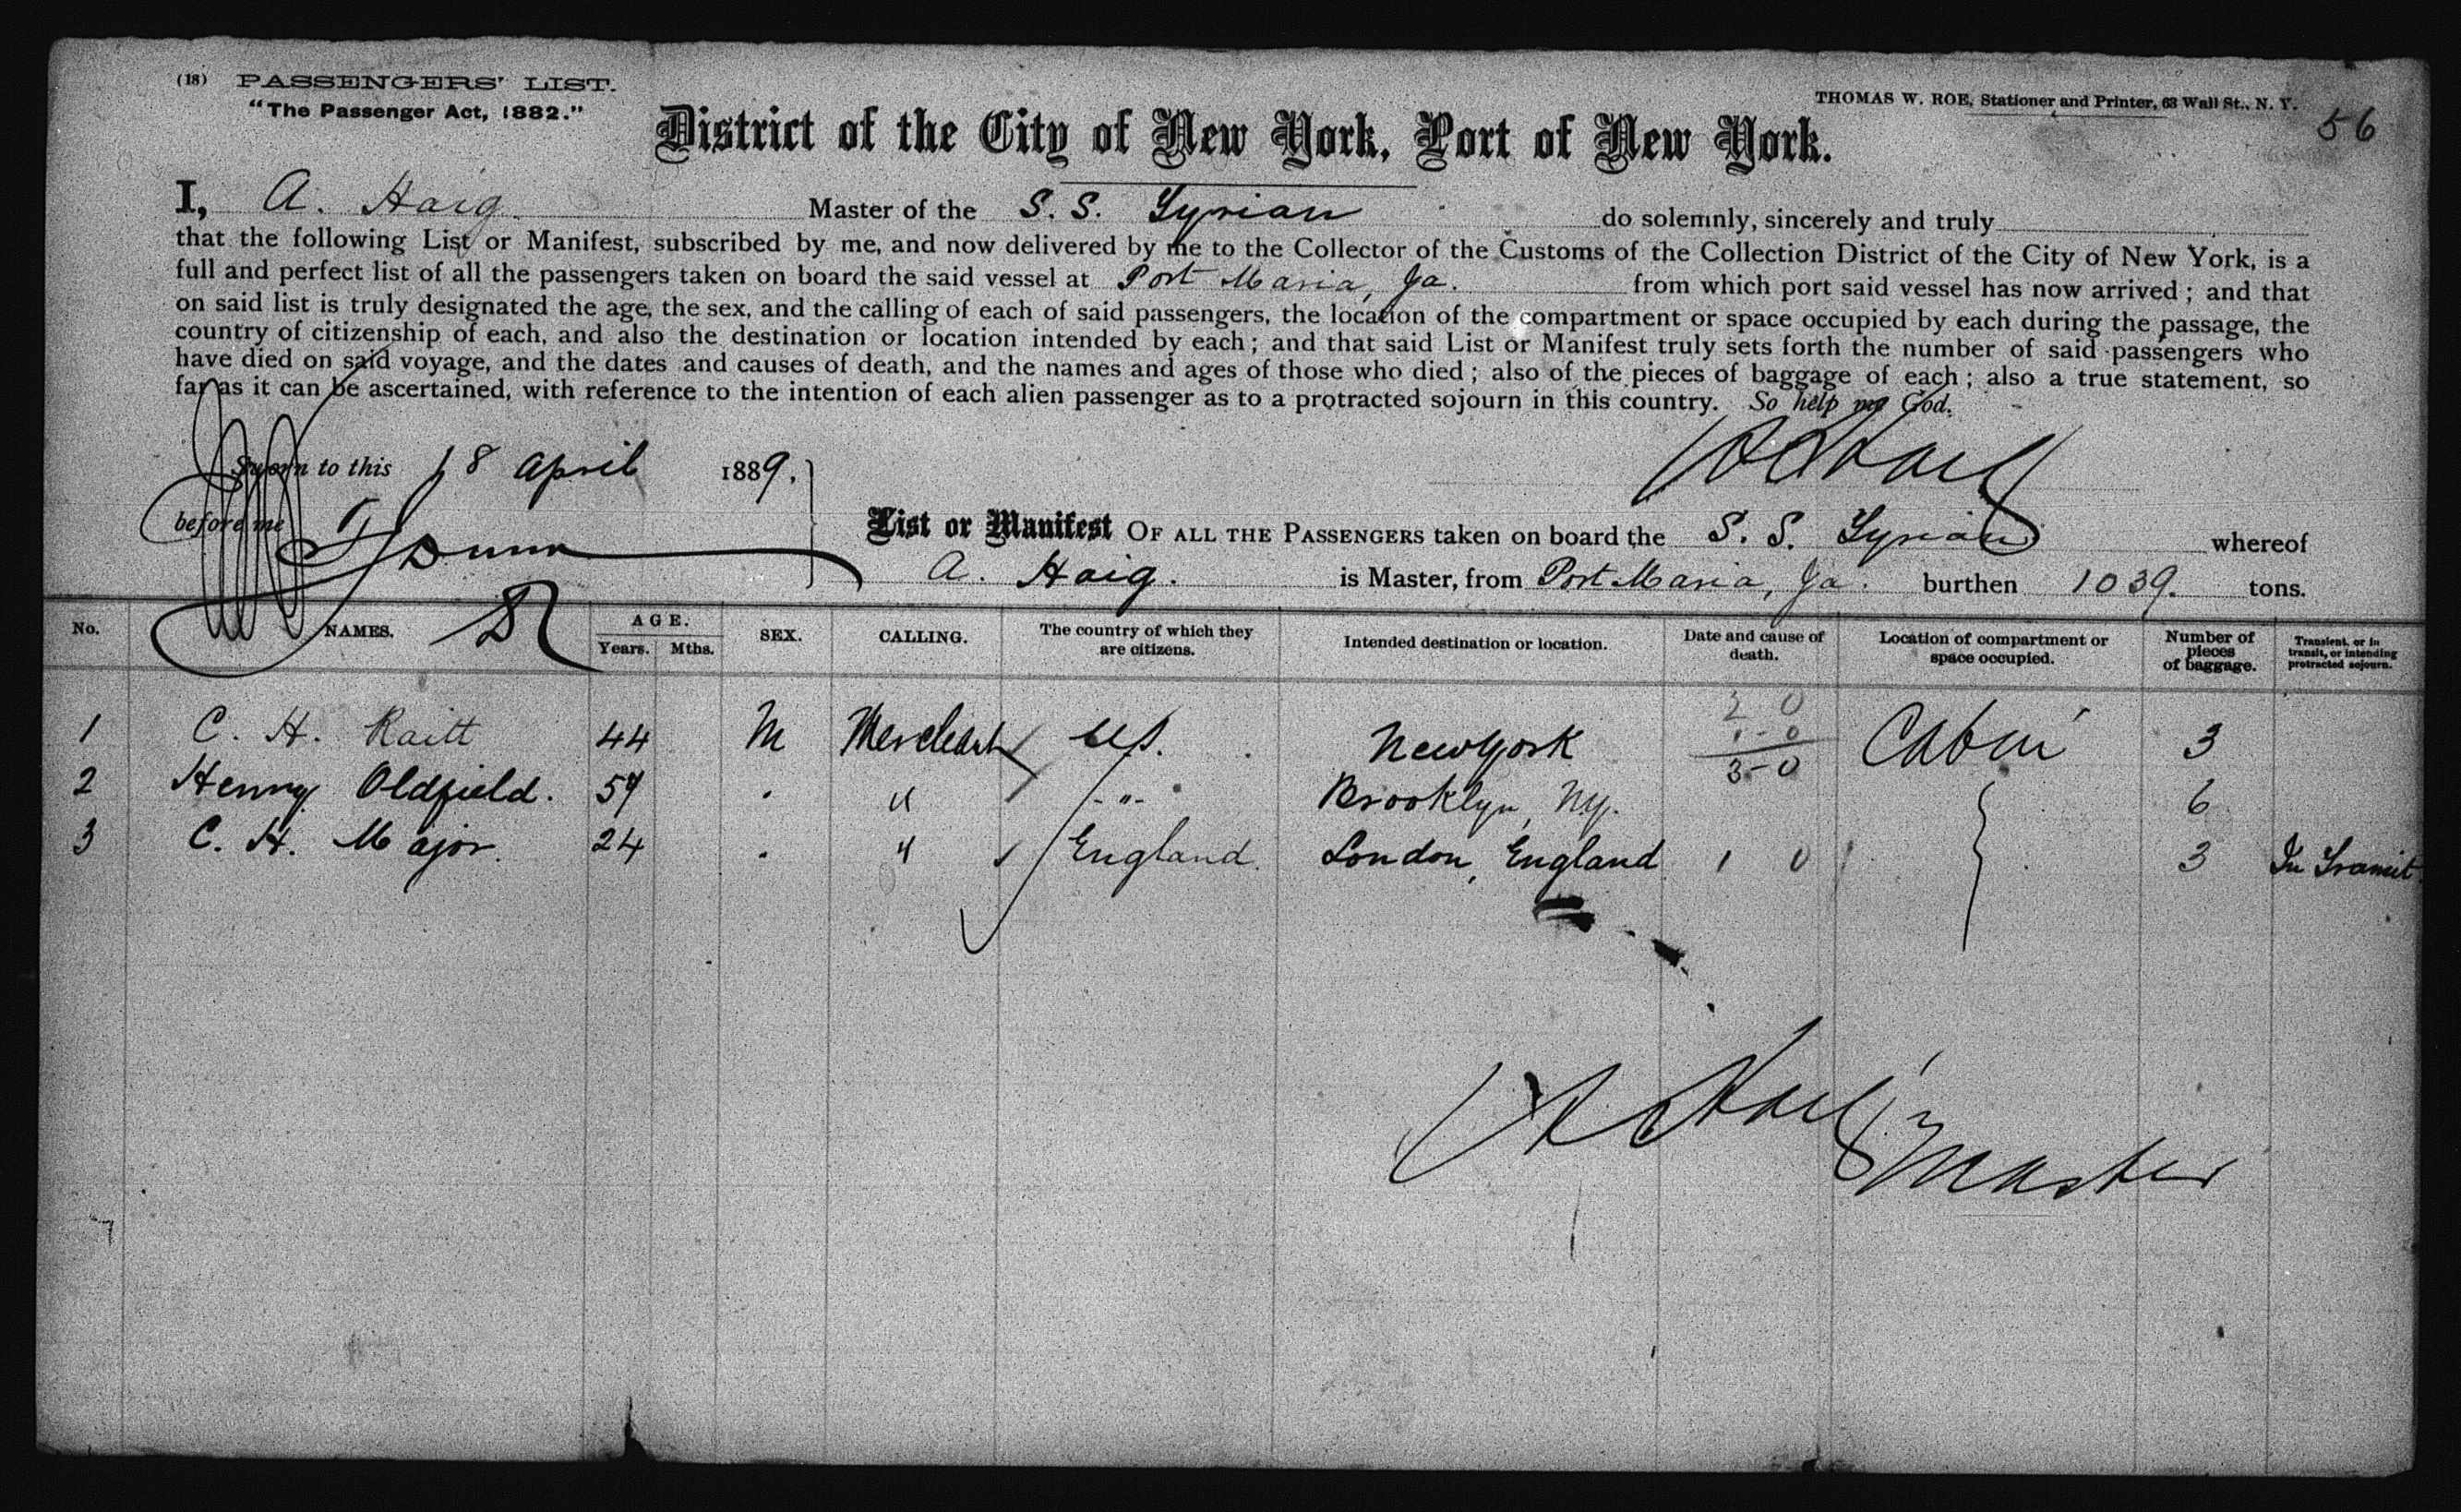 (18) PASSENGERS' LIST.
"The Passenger Act, 1882."
THOMAS W. ROE, Stationer and Printer, 63 Wall St., N. Y.
56
District of the City of New York, Port of New York.
I, A. Haig Master of the S. S. Syrian do solemnly, sincerely and truly
that the following List or Manifest, subscribed by me, and now delivered by me to the Collector of the Customs of the Collection District of the City of New York, is a
full and perfect list of all the passengers taken on board the said vessel at Port Maria, Ja. from which port said vessel has now arrived; and that
on said list is truly designated the age, the sex, and the calling of each of said passengers, the location of the compartment or space occupied by each during the passage, the
country of citizenship of each, and also the destination or location intended by each; and that said List or Manifest truly sets forth the number of said passengers who
have died on said voyage, and the dates and causes of death, and the names and ages of those who died; also of the pieces of baggage of each; also a true statement, so
far as it can be ascertained, with reference to the intention of each alien passenger as to a protracted sojourn in this country. So help me God.
Sworn to this 18 April 1889.
before me Dunn
List or Manifest OF ALL THE PASSENGERS taken on board the S. S. Syrian whereof
A. Haig. is Master, from Port Maria, Ja. burthen 1039. tons.
No. NAMES. AGE. Years. Mths. SEX. CALLING. The country of which they are citizens. Intended destination or location. Date and cause of death. Location of compartment or space occupied. Number of pieces of baggage. Transient, or in transit, or intending protracted sojourn.
2 0
1 - 0
3 - 0
1 C. H. Raitt 44 M Merchant U.S. New York Cabin 3
2 Henry Oldfield. 59 " " - " - Brooklyn, N.Y. 6
3 C. H. Major. 24 " " England. London, England 1 0 3 In Transit
A Haig
Master